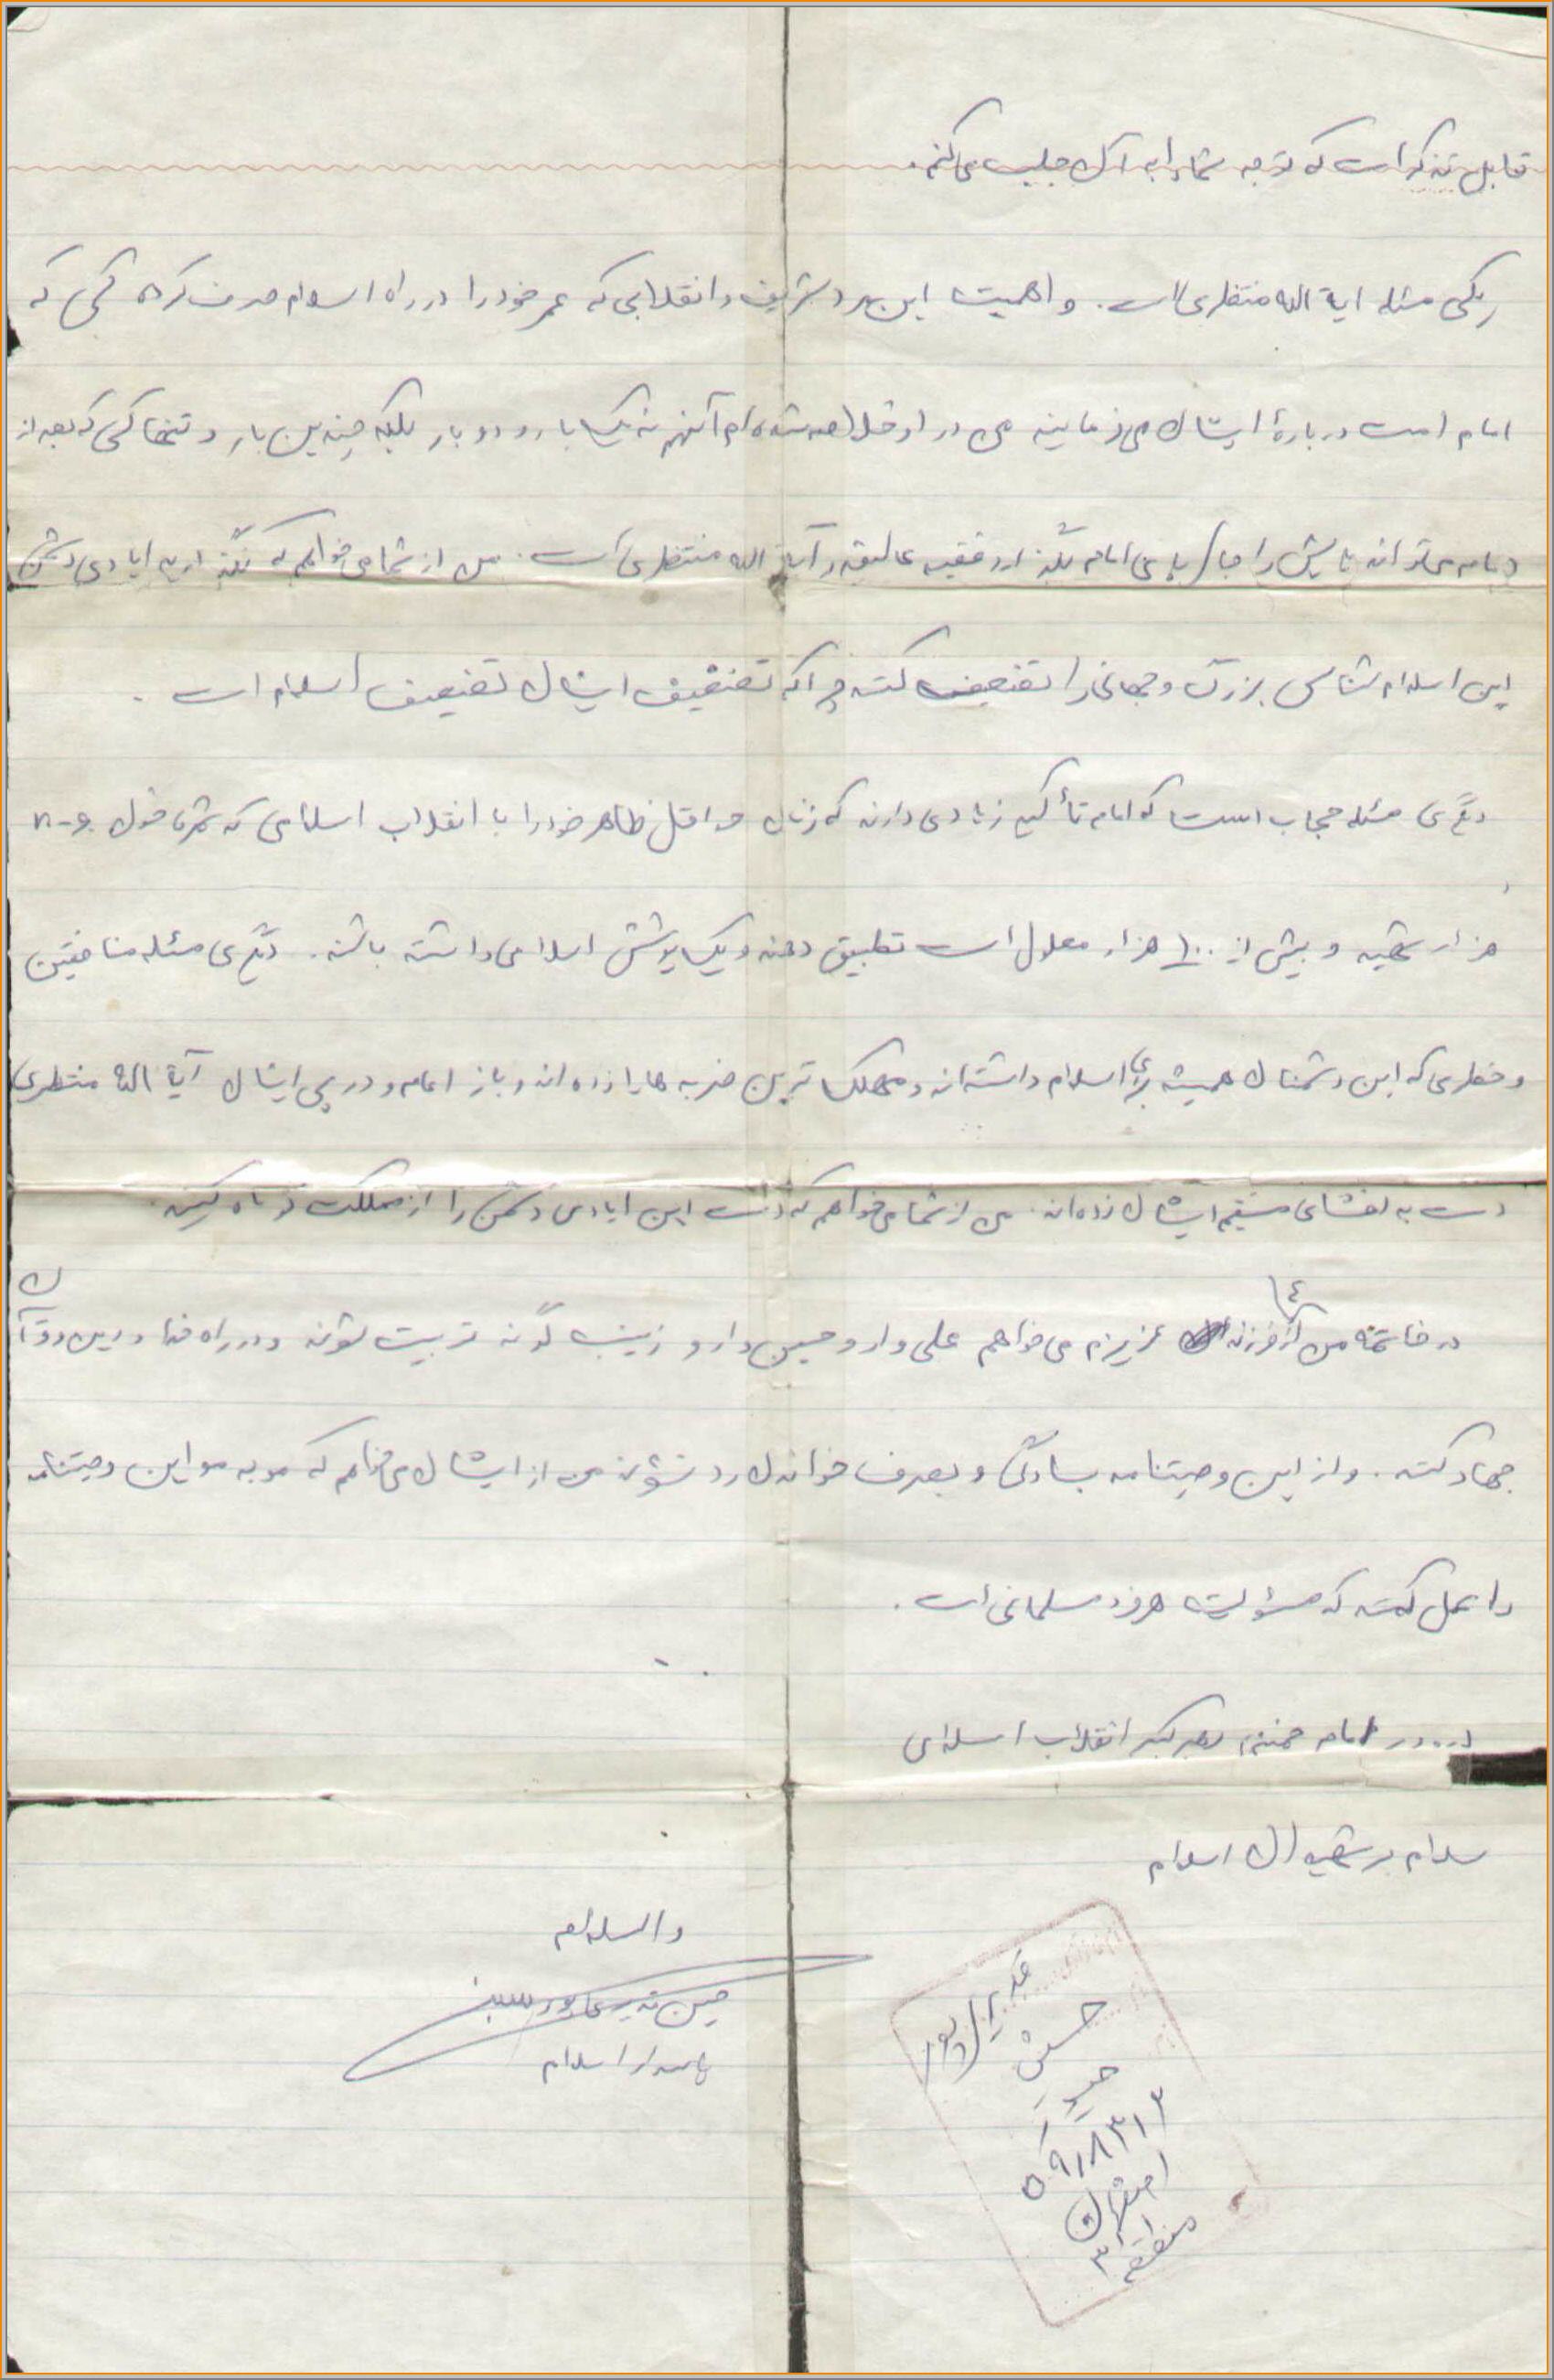 قابل تذکر است که توجه شما را به آن جلب می‌کنم.
یکی مسئله آیة الله منتظری است. و اهمیت این مرد شریف و انقلابی که عمر خود را در راه اسلام صرف کرده کسی که
امام امت درباره ایشان می‌فرمایند من در او خلاصه شده‌ام آنهم نه یکبار و دو بار بلکه چندین بار و تنها کسی که بعد از
امام می‌تواند پایش را جا پای امام بگذارد فقیه عالیقدر آیة الله منتظری است. من از شما می‌خواهم که نگذارید ایادی دشمن
این اسلام شناس بزرگ و جهانی را تضعیف کنند چرا که تضعیف ایشان تضعیف اسلام است.
دیگری مسئله حجاب است که امام تأکید زیادی دارند که زنان حداقل ظاهر خود را با انقلاب اسلامی که ثمره خون
هزار شهید و بیش از ۱۰۰ هزار معلول است تطبیق دهند و یک پوشش اسلامی داشته باشند. دیگری مسئله منافقین
و خطری که این دشمنان همیشه برای اسلام داشته‌اند و مهلک ترین ضربه ها را زده‌اند و باز امام و در پی ایشان آیة الله منتظری
دست به افشای مستقیم ایشان زده‌اند. من از شما می‌خواهم که دست این ایادی دشمن را از مملکت کوتاه کنید.
در خاتمه من از ۴ فرزند عزیزم می‌خواهم علی وار و حسین وار و زینب گونه تربیت شوند و در راه خدا و دین و قرآن
جهاد کنند. و از این وصیتنامه بسادگی و بصرف خواندن رد نشوند من از ایشان می‌خواهم که مو به مو این وصیتنامه
را عمل کنند که مسئولیت هر فرد مسلمانی است.
درود بر امام خمینی رهبر کبیر انقلاب اسلامی
سلام بر شهیدان اسلام
والسلام
حسین
پاسدار اسلام
حسین
۵۹۱۸۳۱۳
اصفهان
منطقه ۳